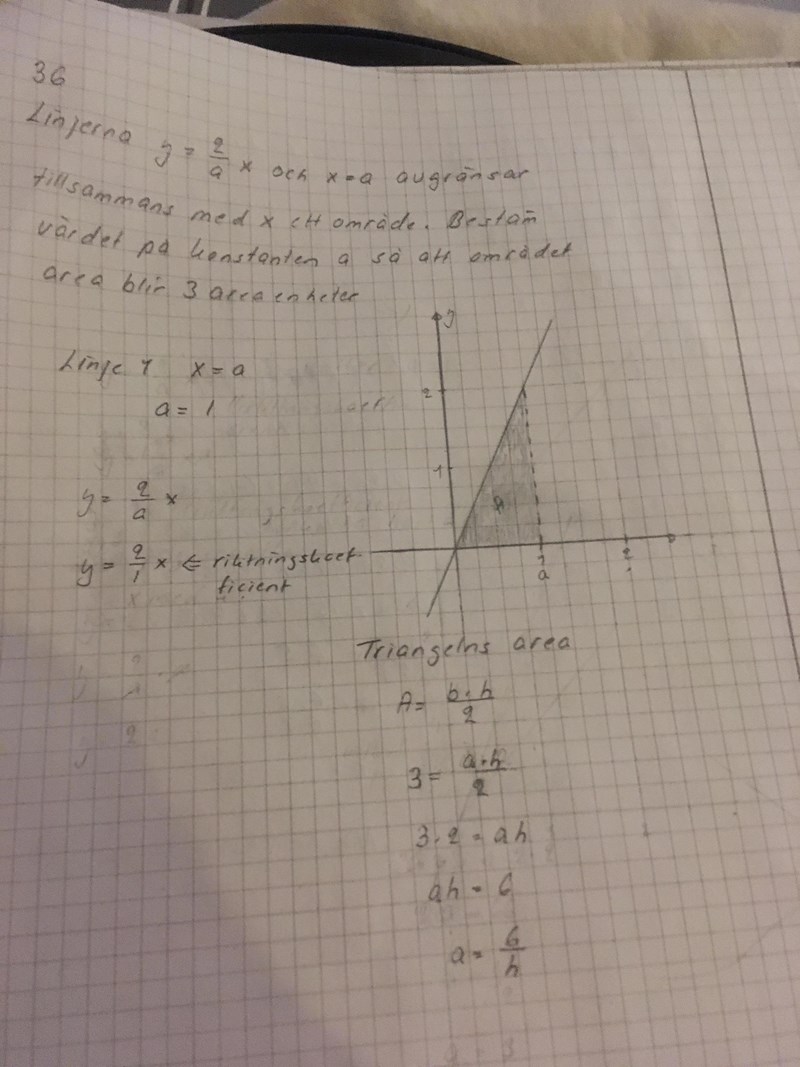 36
Linjerna y = 2/a x och x=a avgränsar
tillsammans med x ett område. Bestäm
värdet på konstanten a så att området
area blir 3 areaenheter
Linje 1 x = a
a = 1
y = 2/a x
y = 2/1 x ⇐ riktningskoef-
ficient
y
2
1
A
1
a
2
Triangelns area
A = b·h/2
3 = a·h/2
3·2 = ah
ah = 6
a = 6/h